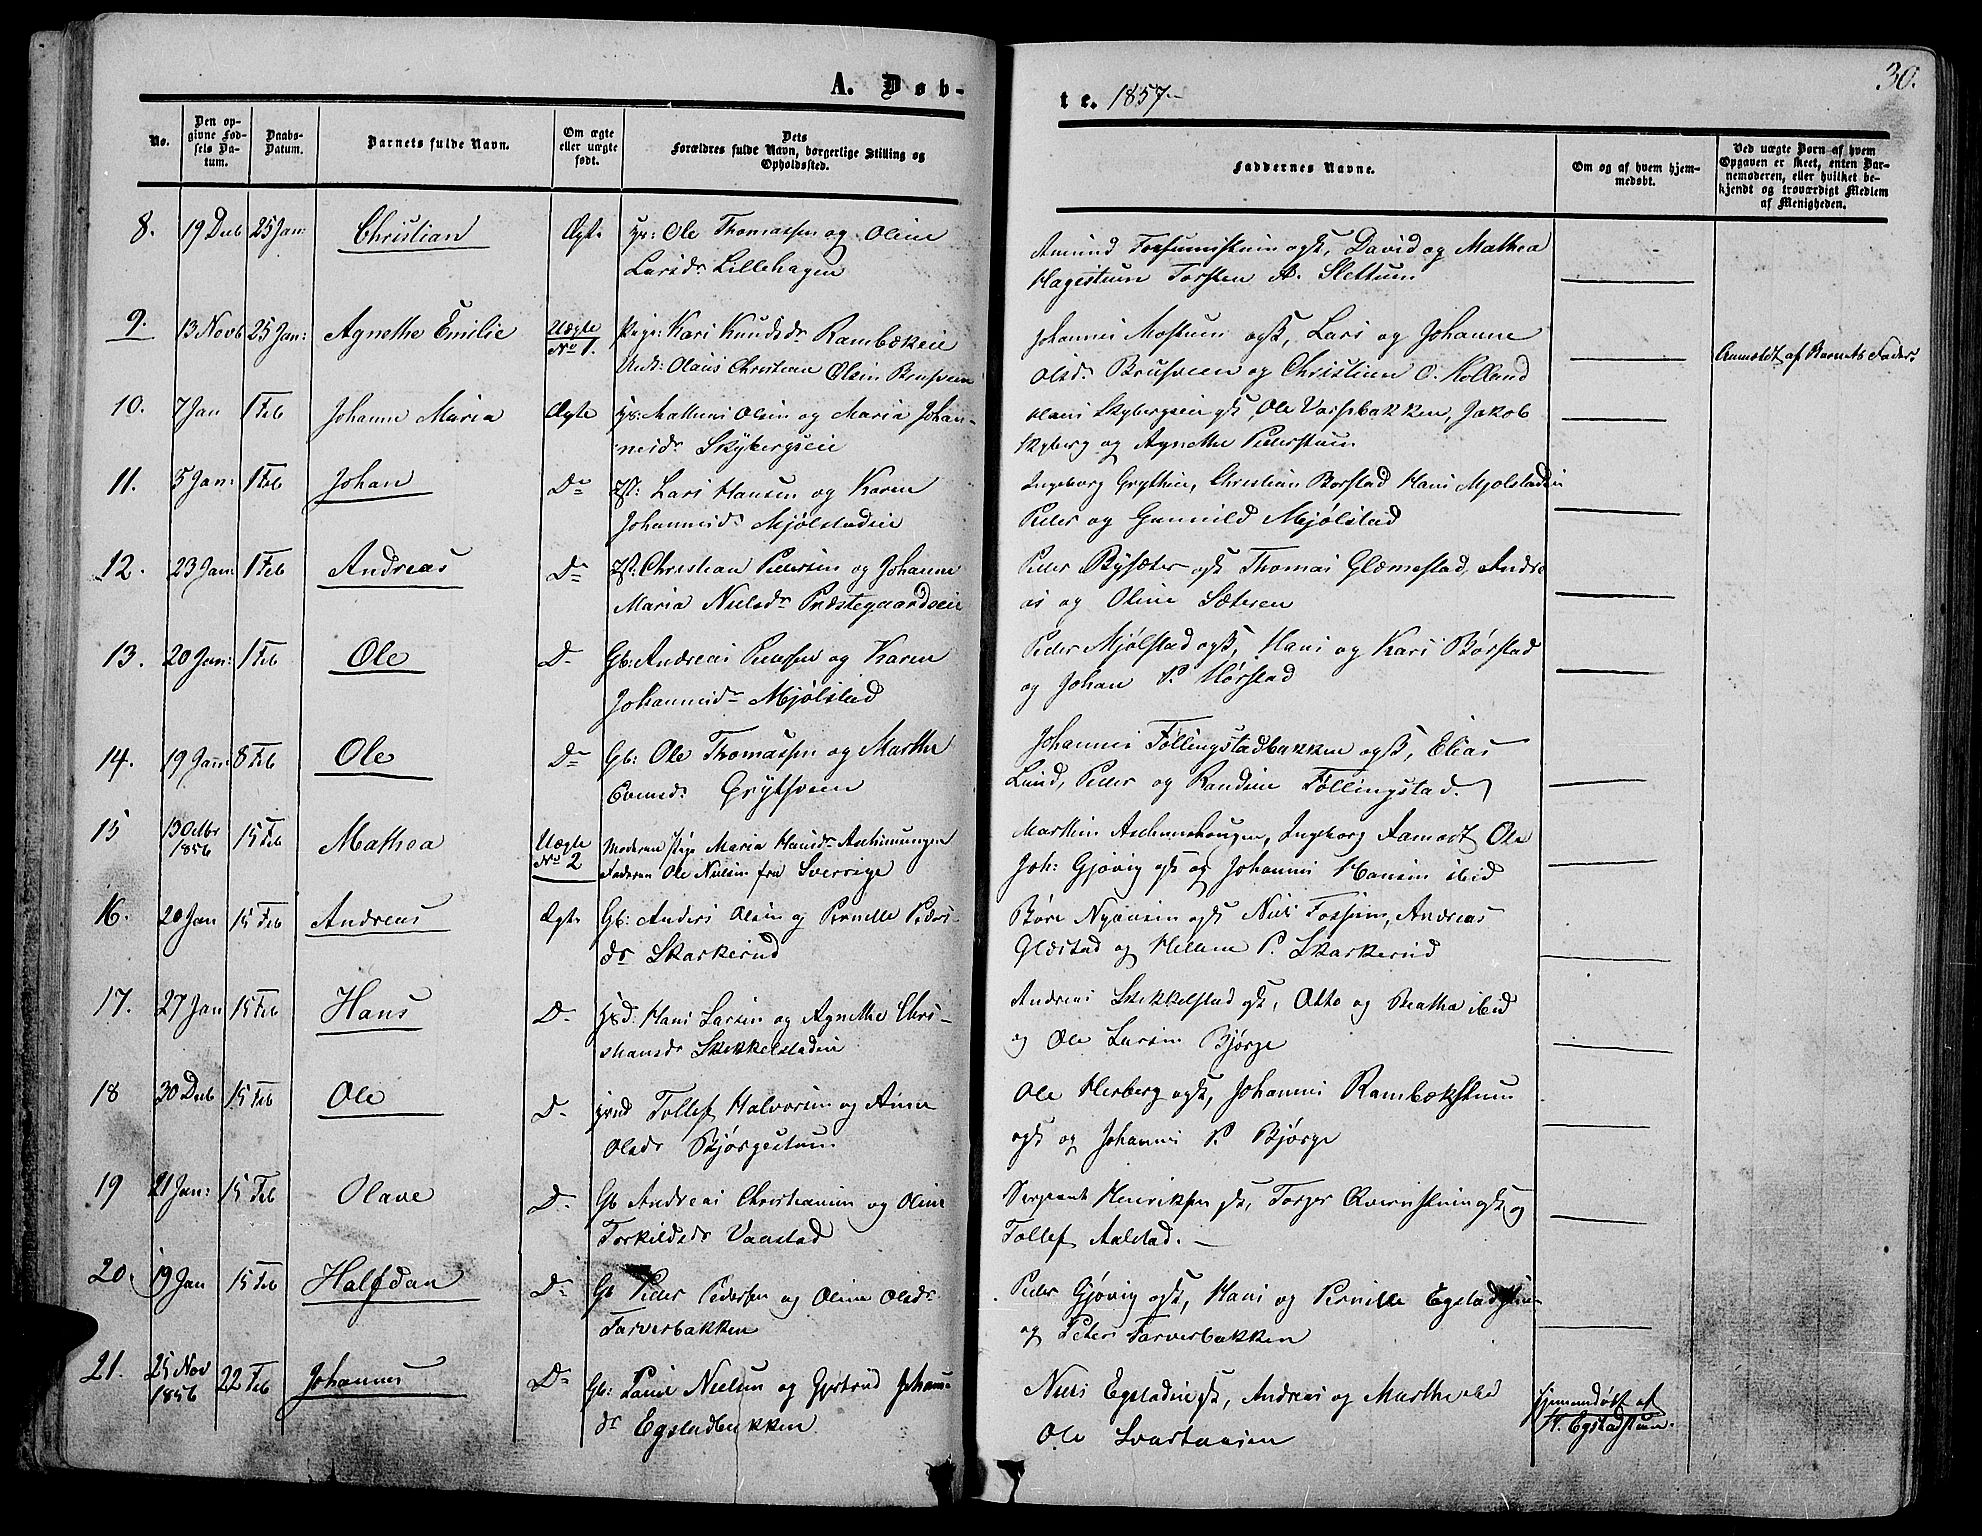 A. Døb-
te. 1857.
30.
No.
Den op-
givne Fød-
sels Da-
tum.
Daabs-
Datum.
Barnets fulde Navn.
Om ægte
eller uægte
født.
Dets
Forældres fulde Navn, borgerlige Stilling og
Opholdssted.
Faddernes Navne.
Om og af hvem hjem-
medøbt.
Ved uægte Børn af hvem
Opgaven er skeet, enten Bar-
nemoderen, eller hvilket be-
kjendt og troværdigt Medlem
af Menigheden.
8. 19 Decb 25 Jan: Christian Ægte Ole Thomassen og Oline
Larsdr Lillehagen
Amund Fossumstuen ogsk, David og Mathea
Hagestuen Torsten A. Slettum
9. 13 Novb 25 Jan: Agnethe Emilie Uægte
No 1.
Pige: Kari Knudsdr Rambækeie
Unk: Olaus Christian Olsen Brusveen
Johannes Mostuen ogsk, Lars og Johanne
Olsdr Brusveen og Christian O. Kolland
Anmeldt af Barnets Fader
10. 7 Jan 1 Feb Johanne Maria Ægte Mathias Olsen og Maria Johan-
nesdr Skybergseie
Hans Skybergseie gsk, Ole Varpsbakken, Jakob
Skyberg og Agnethe Pederstuen
11. 5 Jan: 1 Feb Johan Do Lars Hansen og Karen
Johannesdr Mjølstadeie
Ingeborg Grythen, Christian Borstad Hans Mjølstadeie
Peder og Gunnild Mjølstad
12. 23 Jan: 1 Feb Andreas Do Christian Pedersen og Johanne
Maria Nielsdr Præstegaardseie
Peder Bysæter ogsk Thomas Glæmestad, Andre
as og Oline Sæteren
13. 20 Jan: 1 Feb Ole Do Gb: Andreas Pedersen og Karen
Johannesdr Mjølstad
Peder Mjølstad ogsk, Hans og Kari Børstad
og Johan P. Hørstad
14. 19 Jan: 8 Feb Ole Do Gb: Ole Thomassen og Marthe
Evensdr Grytsveen
Johannes Føllingstadbakken ogsk, Elias
Lund, Peder og Randine Føllingstad.
15 13 Octbr
1856
15 Feb Mathea Uægte
No 2
Moderen Pige Maria Hansdr Aschimungen
Faderen Ole Nielsen fra Sverrige
Marthin Aschimhougen, Ingeborg Ole
Joh: Gjøvig gsk og Johannes Hansen ibid
16. 20 Jan 15 Feb Andreas Ægte Gb: Anders Olsen og Pernille Peders-
dr Skarkerud
Børe Nyøvsen ogsk Niels Fossum, Andreas
Glæstad og Helene P. Skarkerud
17. 27 Jan 15 Feb Hans Do Hans Larsen og Agnethe Chri-
stiansdr Skikkelstadeie
Andreas Skikkelstad gsk, Otto og Beatha ibid
og Ole Larsen Bjørge
18 30 Decb 15 Feb Ole Do Tollef Halvorsen og Anne
Olsdr Bjørgestuen
Ole Herberg ogsk, Johannes Rambækstuen
ogsk og Johannes P. Bjørge
19 21 Jan: 15 Feb Olave Do Gb Andreas Christiansen og Oline
Torkildsdr Vaastad
Sergeant Henriksen gsk, Torger ogsk og
Tollef Aalstad.
20. 19 Jan 15 Feb Halfdan Do Gb Peder Pedersen og Oline Olsdr
Farverbakken
Peder Gjøvig ogsk, Hans og Pernille Egstadstuen
og Peter Farverbakken
21. 25 Nov
1856
22 Feb Johannes Do Gb: Nielsen og Gjertrud Johans-
dr Egstadbakken
Niels Egstadeie gsk, Andreas og Marthe ibid
Ole Svartaasen
Hjemmedøbt af
H. Egstadstuen.